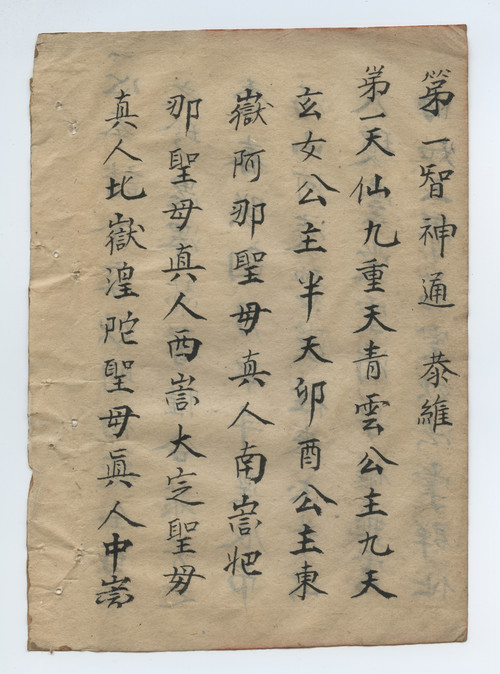 第一智神通 恭維
第一天仙九重天青雲公主九天
玄女公主半天卯酉公主東
嶽阿那聖母真人南嵩妑
那聖母真人西嵩大定聖母
真人北嶽湟陀聖母眞人中嵩